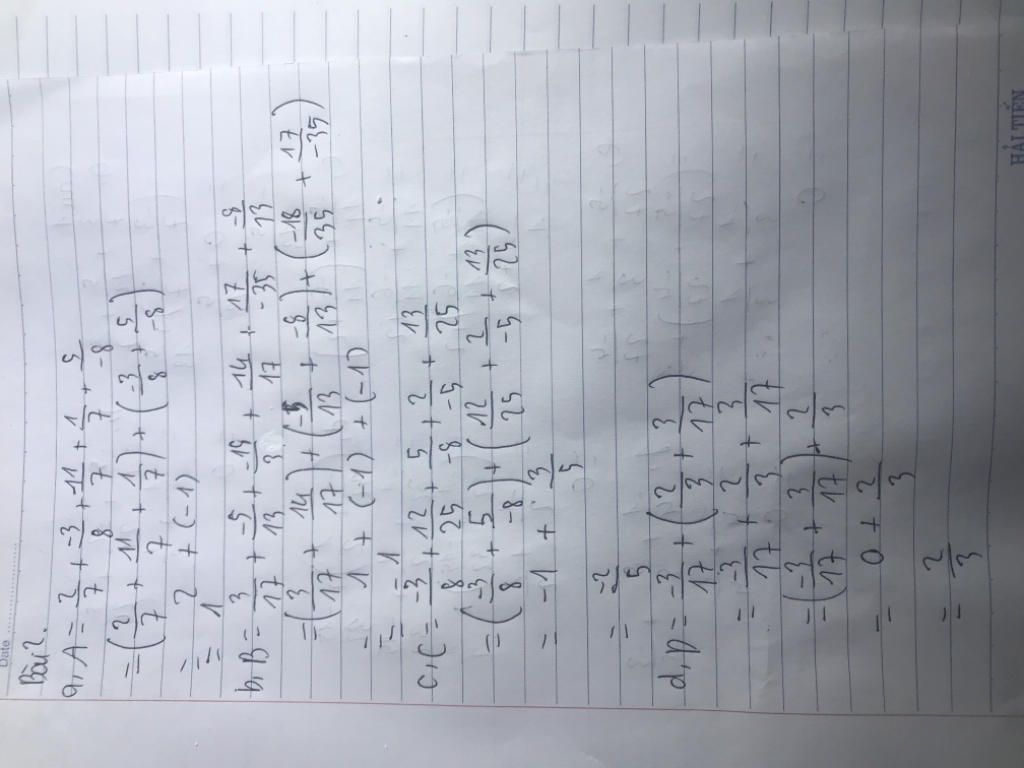 Date
Bài 2.
a, A = 2/7 + -3/8 + 11/7 + 1/7 + 5/-8
= (2/7 + 11/7 + 1/7) + (-3/8 + 5/-8)
= 2 + (-1)
= 1
b, B = 3/17 + -5/13 + -18/35 + 14/17 + 17/-35 + -8/13
= (3/17 + 14/17) + (-5/13 + -8/13) + (-18/35 + 17/-35)
= 1 + (-1) + (-1)
= -1
c, C = -3/8 + 12/25 + 5/-8 + 2/-5 + 13/25
= (-3/8 + 5/-8) + (12/25 + 2/-5 + 13/25)
= -1 + 3/5
= -2/5
d, D = -3/17 + (2/3 + 3/17)
= -3/17 + 2/3 + 3/17
= (-3/17 + 3/17) + 2/3
= 0 + 2/3
= 2/3
HẢI TIẾN